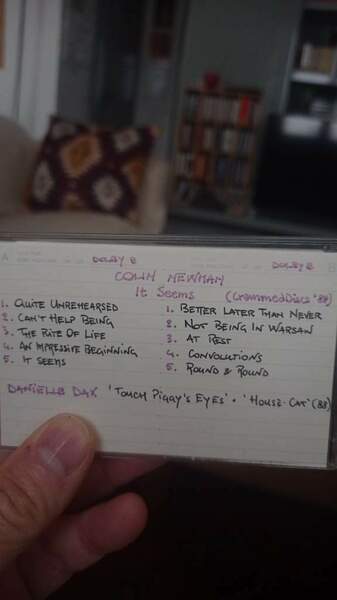 A DOLBY B DOLBY B B
COLIN NEWMAN
It Seems (Crammed Discs '88)
1. QUITE UNREHEARSED
2. CAN'T HELP BEING
3. THE RITE OF LIFE
4. AN IMPRESSIVE BEGINNING
5. IT SEEMS
1. BETTER LATER THAN NEVER
2. NOT BEING IN WARSAW
3. AT REST
4. CONVOLUTIONS
5. ROUND & ROUND
DANIELLE DAX 'TOUCH PIGGY'S EYES' • 'HOUSE-CAT' (88)